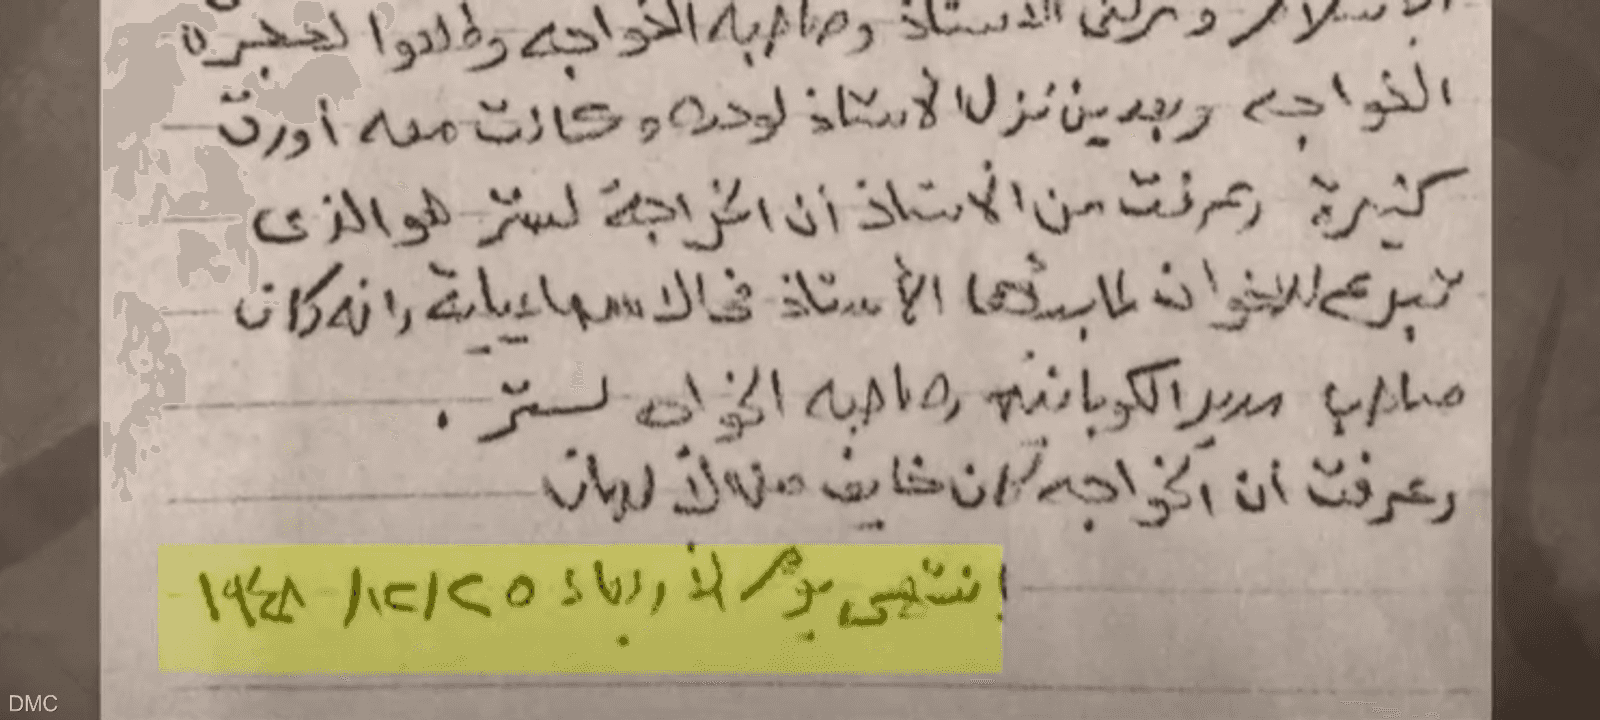 الاستاذ وصاحبه الخواجه وطلعوا لحجرة
الخواجه وبعدين نزل الأستاذ لوحده وكانت معه أورق
كثيرة وعرفت من الأستاذ أن الخواجة لستر هو الذى
تبرع للاخوان لما بدأها الأستاذ فى الاسماعيلية وانه كان
صاحب مدير الكوبانيه وصاحبه الخواجه لستر .
وعرفت ان الخواجه كان خايف من الألمان
انتهى يوم الأربعاء ٢٥/١٢/١٩٤٨
DMC